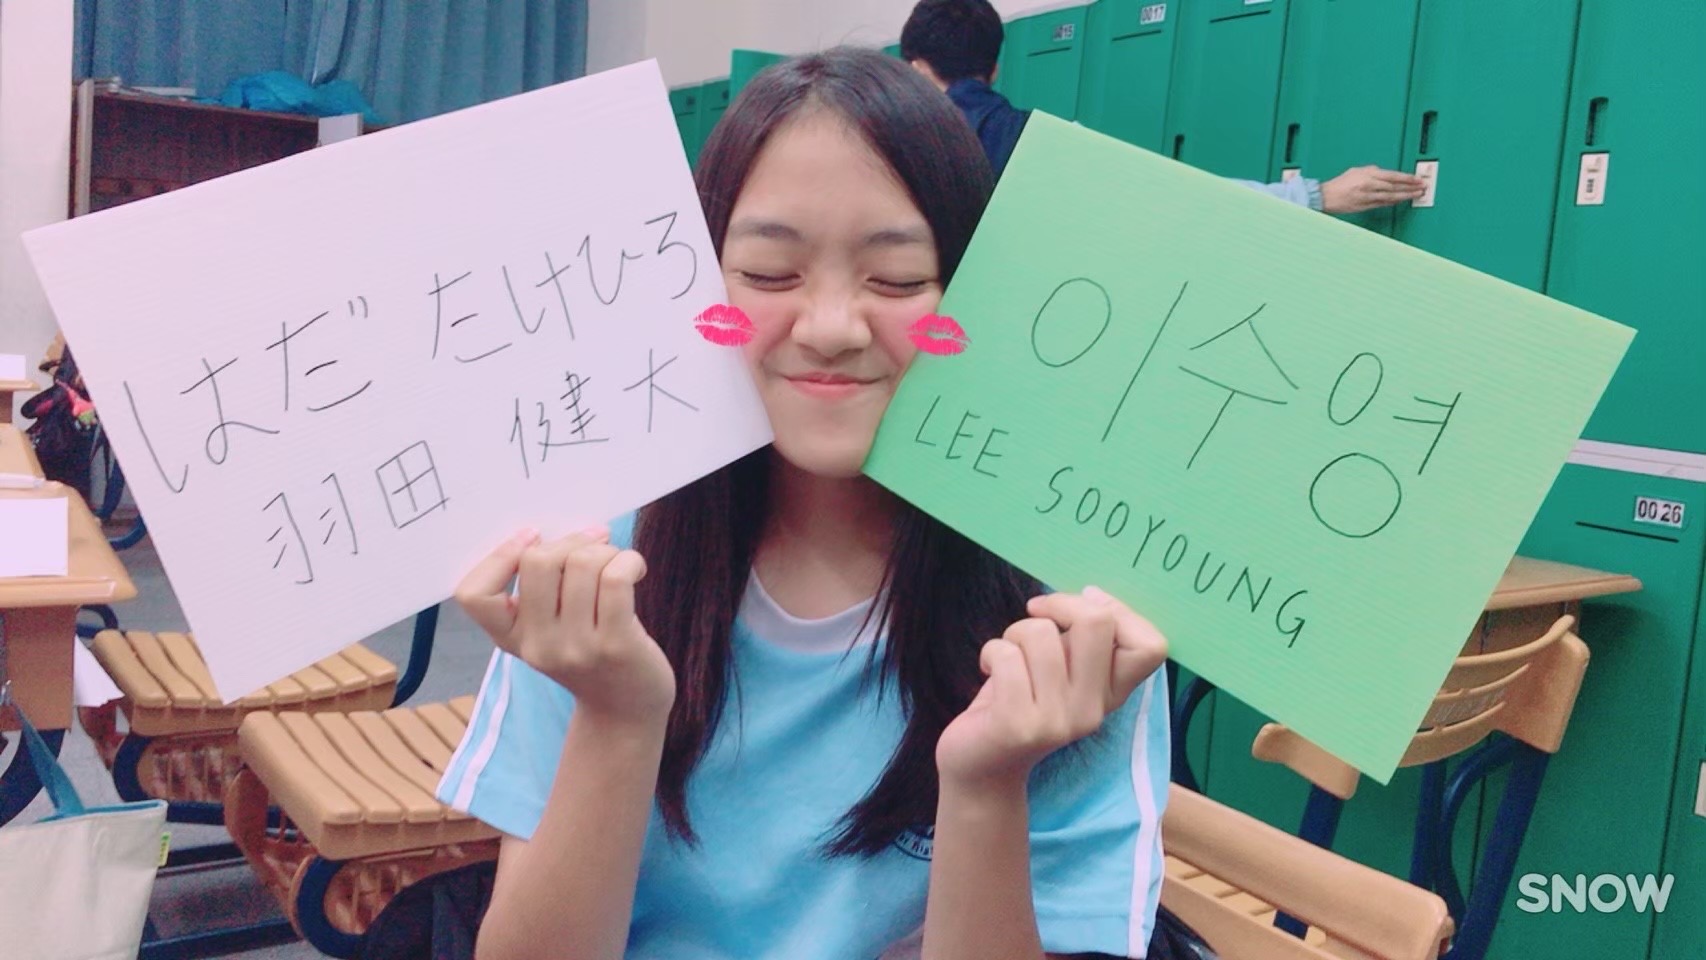 はだ たけひろ
羽田 健大
이수영
LEE SOOYOUNG
0015
0017
0026
SNOW